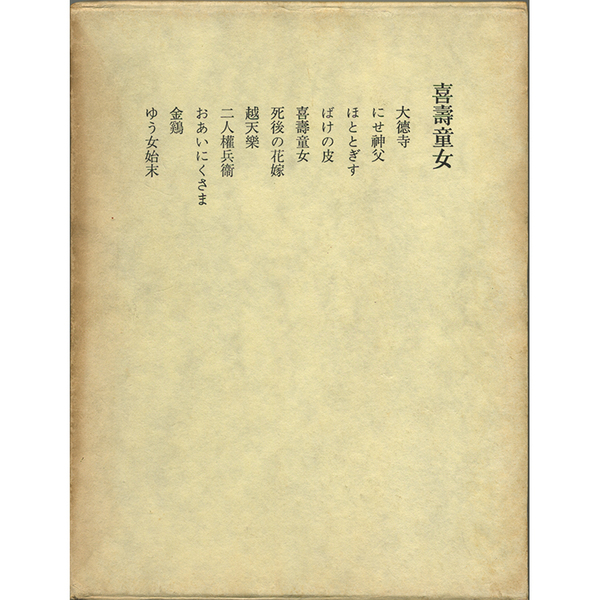 喜壽童女
大德寺
にせ神父
ほととぎす
ばけの皮
喜壽童女
死後の花嫁
越天樂
二人權兵衞
おあいにくさま
金鶏
ゆう女始末